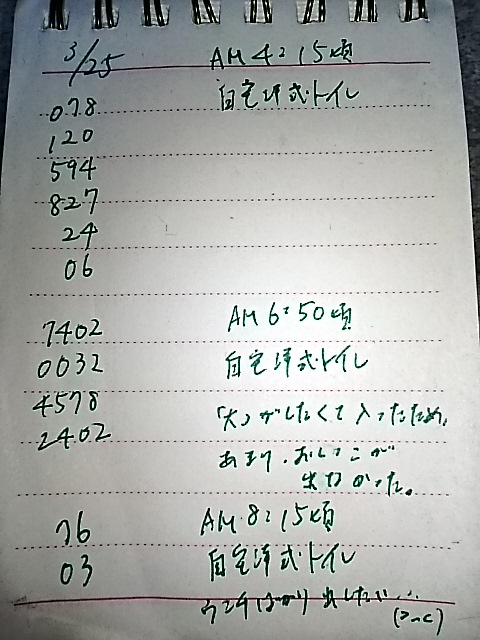 3/25 AM 4:15頃
078 自宅洋式トイレ
120
594
827
24
06
7402 AM 6:50頃
0032 自宅洋式トイレ
4578 「大」がしたくて入ったため、
2402 あまり、おしっこが
出なかった。
76 AM 8:15頃
03 自宅洋式トイレ
ウンチばかり出したい…